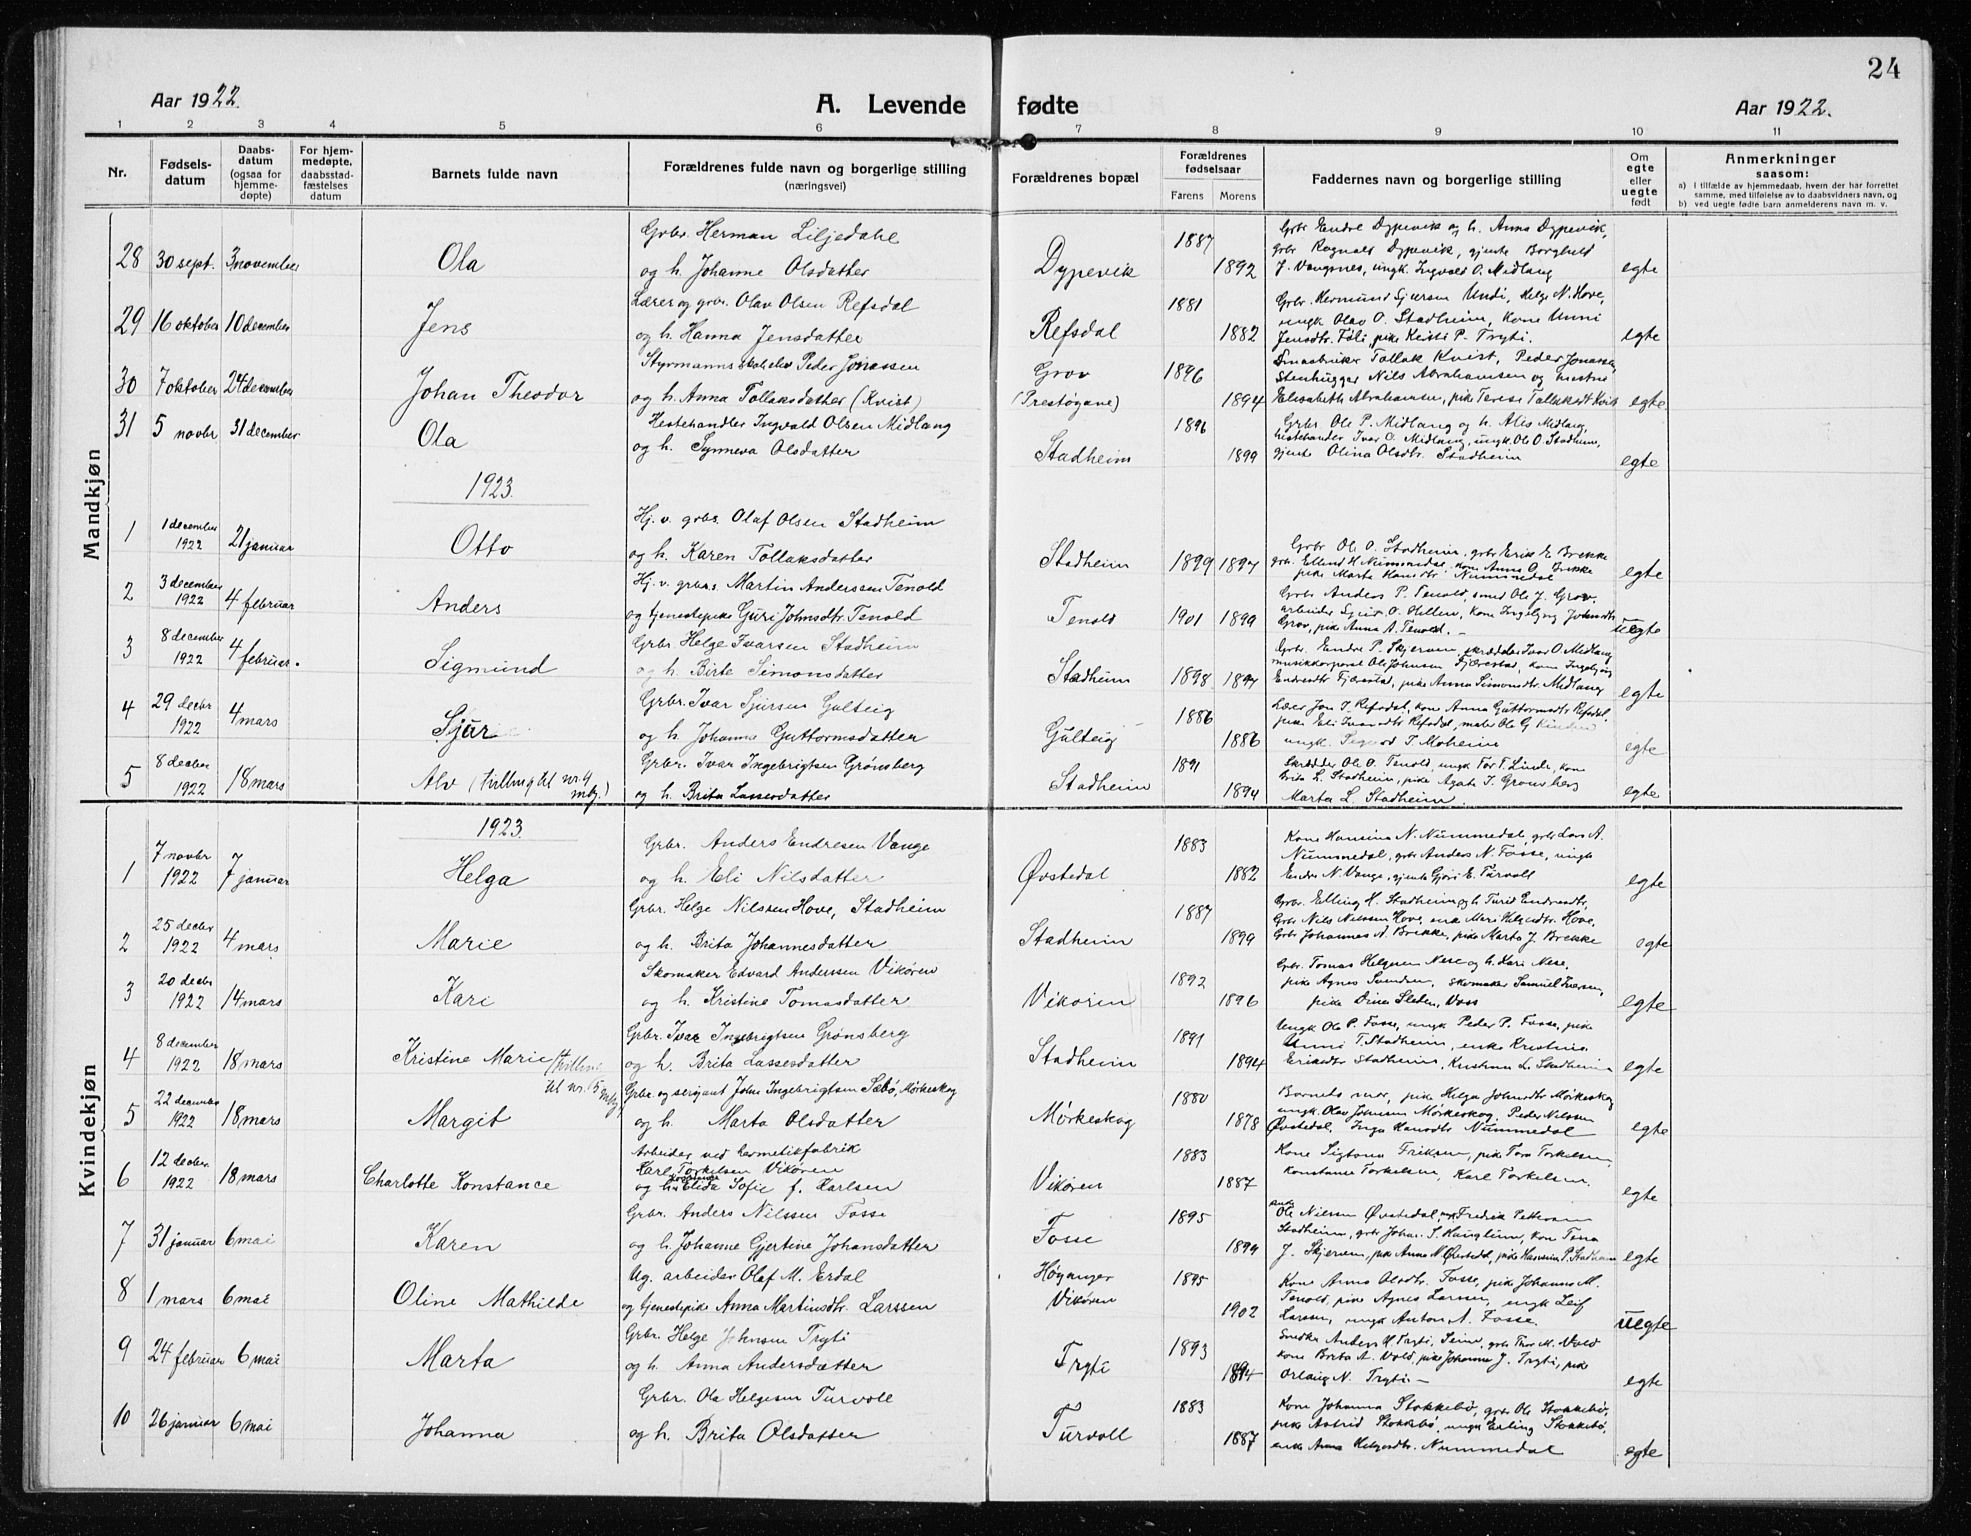 24
Aar 1922.
A. Levende fødte
Aar 1922.
1 2 3 4 5 6 7 8 9 10 11
Nr.
Fødsels-
datum
Daabs-
datum
(ogsaa for
hjemme-
døpte)
For hjem-
medøpte,
daabsstad-
fæstelses
datum
Barnets fulde navn
Forældrenes fulde navn og borgerlige stilling
(næringsvei)
Forældrenes bopæl
Forældrenes
fødselsaar
Farens
Morens
Faddernes navn og borgerlige stilling
Om
egte
eller
uegte
født
Anmerkninger
saasom:
a) i tilfælde av hjemmedaab, hvem der har forrettet
samme, med tilføielse av to daabsvidners navn, og
b) ved uegte fødte barn anmelderens navn m. v.
Mandkjøn
Grbr. Herman Liljedahl 1887 Grbr Endre Dypevik og h. Anna Dypevik,
28 30 sept. 3 november Ola Dypevik grbr Ragnald Dypevik, gjente Borghild
og h. Johanne Olsdatter 1892 J. Vangsnes, ungk. Ingvald O. Midlang egte
Lærer og grbr. Olav Olsen Refsdal 1881 Grbr. Hermund Sjursen Undi, Helge N. Hove,
29 16 oktober 10 december Jens Refsdal ungk Olav O. Stadheim, kone Unni
og h. Hanna Jensdatter 1882 Jensdtr. Föli, pike Kristi P. Tryti. egte
Styrmannsskoleelev Peder Jonassen Grov 1896 Smaabruker Tollak Kvist, Peder Jonassen,
30 7 oktober 24 december Johan Theodor Stenhugger Nils Abrahamsen og hustru
og h. Anna Tollaksdatter (Kvist) (Prestøgane) 1894 Elisabeth Abrahamsen, pike Terese Tollaksdt Kvist egte
31 5 novbr 31 december Ola Hestehandler Ingvald Olsen Midlang 1896 Grbr Ole P. Midlang og h. Alis Midlang,
hestehander Ivar O. Midlang, ungk. Ole O. Stadheim,
og h. Synneva Olsdatter Stadheim 1899 gjente Olina Olsdtr. Stadheim egte
1923.
1 1 december 1922 21 januar Otto Hj. v. grbr. Olaf Olsen Stadheim
Grbr Ole O. Stadheim, grbr Erik E Brekke
og h. Karen Tollaksdatter Stadheim 1899 1897 grbr. Ellend H Nummedal, kone Anna O. Brekke
pike Marta Hansdtr. Nummedal egte
2 3 december 1922 4 februar Anders Hj. v. grbr.s Martin Anderssen Tenold
Grbr Anders P. Tenold, smed Ole J. Grov,
og tjenestepike Guri Johnsdtr. Tenold Tenold 1901 1899 arbeider Sjurd O. Hellen, kone Ingebjørg Johnsdtr
Grov, pike Anna A. Tenold. — uegte
3 8 december 1922 4 februar. Sigmund Grbr. Helge Ivarsen Stadheim
Grbr. Endre P. Skjerven, skrædder Ivar O. Midlang
og h. Birte Simonsdatter Stadheim 1898 1897 musikkorporal Ole Johnsen Fjærestad, kone Ingebjørg
Endresdtr Fjærestad, pike Anna Simonsdtr. Midlang egte
4 29 decbr 1922 4 mars Sjur Grbr. Ivar Sjursen Gulteig 1886 Lærer Jon T. Refsdal, kone Anna Guttormsdtr. Refsdal,
pike Eli Ivarsdtr Refsdal, maler Ole G.
og h. Johanne Guttormsdatter Gulteig 1886 ungk. Sigurd T. Moheim egte
5 8 decbr 1922 18 mars Alv (tvilling til nr. 4 mkj.) Grbr. Ivar Ingebrigtsen Grønsberg 1891 Skrædder Ole O. Tenold, ungk Tor T. Linde, kone
Brita L. Stadheim, pike Agate I. Grønsberg
og h. Brita Lassesdatter Stadheim 1894 Marta L. Stadheim. egte
Kvindekjøn
1923.
1 7 novbr 1922 7 januar Helga Grbr. Anders Endresen Vange 1883 Kone Hansina N. Nummedal, grbr Lars A.
Nummedal, grbr Anders N. Fosse, ungk
og h. Eli Nilsdatter Øvstedal 1882 Endre N. Vange, gjente Gjøri E. Turvoll egte
2 25 decbr 1922 4 mars Marie Grbr. Helge Nilssen Hove, Stadheim 1887 Grbr. Elling H. Stadheim og h. Turid Endresdtr,
Grbr Nils Nilssen Hove, enke Mari Helgesdtr. Hove,
og h. Brita Johannesdatter Stadheim 1899 Grbr Johannes A. Brekke, pike Marta J. Brekke egte
3 20 decbr 1922 14 mars Kari Skomaker Edvard Anderssen Vikøren 1892 Grbr. Tomas Helgesen Nese og h. Kari Nese,
pike Agnes Svendsen, skomaker Samuel Iversen,
og h. Kristine Tomasdatter Vikøren 1896 pike Dina Sleden, Voss egte
4 8 december 1922 18 mars Kristine Marie (tvilling til nr. 5 mkj.) Grbr. Ivar Ingebrigtsen Grønsberg 1891 Ungk Ole P. Fosse, ungk Peder P. Fosse, pike
Unni T. Stadheim, enke Kristina
og h. Brita Lassesdatter Stadheim 1894 Eriksdtr Stadheim, Kristina L. Stadheim egte
5 22 december 1922 18 mars Margit Grbr. og sersjant John Ingebrigtsen Sæbø, Mørkeskog 1880 Barnets mor, pike Helga Johnsdtr Mørkeskog
ungk. Olav Johnsen Mørkeskog, Peder Nilssen
og h. Marta Olsdatter Mørkeskog 1878 Øvstedal, Inga Hansdtr Nummedal egte
6 12 decbr. 1922 18 mars Charlotte Konstance Arbeider ved hermetikfabrik
Karl Torkelsen Vikøren 1883 Kone Sigtona Eriksen, pike Tora Torkelsen,
og h. Elida Sofie f. Karlsen Vikøren 1887 Konstance Torkelsen, Karl Torkelsen. egte
7 31 januar 6 mai Karen Grbr. Anders Nilssen Fosse 1895 Ole Nilssen Øvstedal, Fredrik Pettersen
Stadheim, grbr Johan S. Hanglum, kone Tina
og h. Johanne Gjertine Johansdatter Fosse 1899 J. Skjerven, pike Anna N. Øvstedal, pike Hansina P. Stadheim egte
8 1 mars 6 mai Oline Mathilde Ug. arbeider Olaf M. Erdal Høyanger 1895 Kone Anna Olsdtr. Fosse, pike Johanna M.
Tenold, pike Agnes Larssen, ungk Leif
og tjenestepike Anna Martinsdtr. Larssen Vikøren 1902 Larssen, ungk Anton A. Fosse. uegte
9 24 februar 6 mai Marta Grbr. Helge Johnsen Tryti 1893 Snedker Anders H. Tryti, Seim, grbr Thor M. Vold
kone Brita A. Vold, pike Johanna J. Tryti, pike
og h. Anna Andersdatter Tryti 1894 Orlaug N. Tryti — egte
10 26 januar 6 mai Johanna Grbr. Ola Helgesen Turvoll 1883 Kone Johanna Stokkebø, grbr Ole Stokkebø,
pike Astrid Stokkebø, ungk Erling Stokkebø,
og h. Brita Olsdatter Turvoll 1887 enke Anna Helgesdtr. Nummedal egte